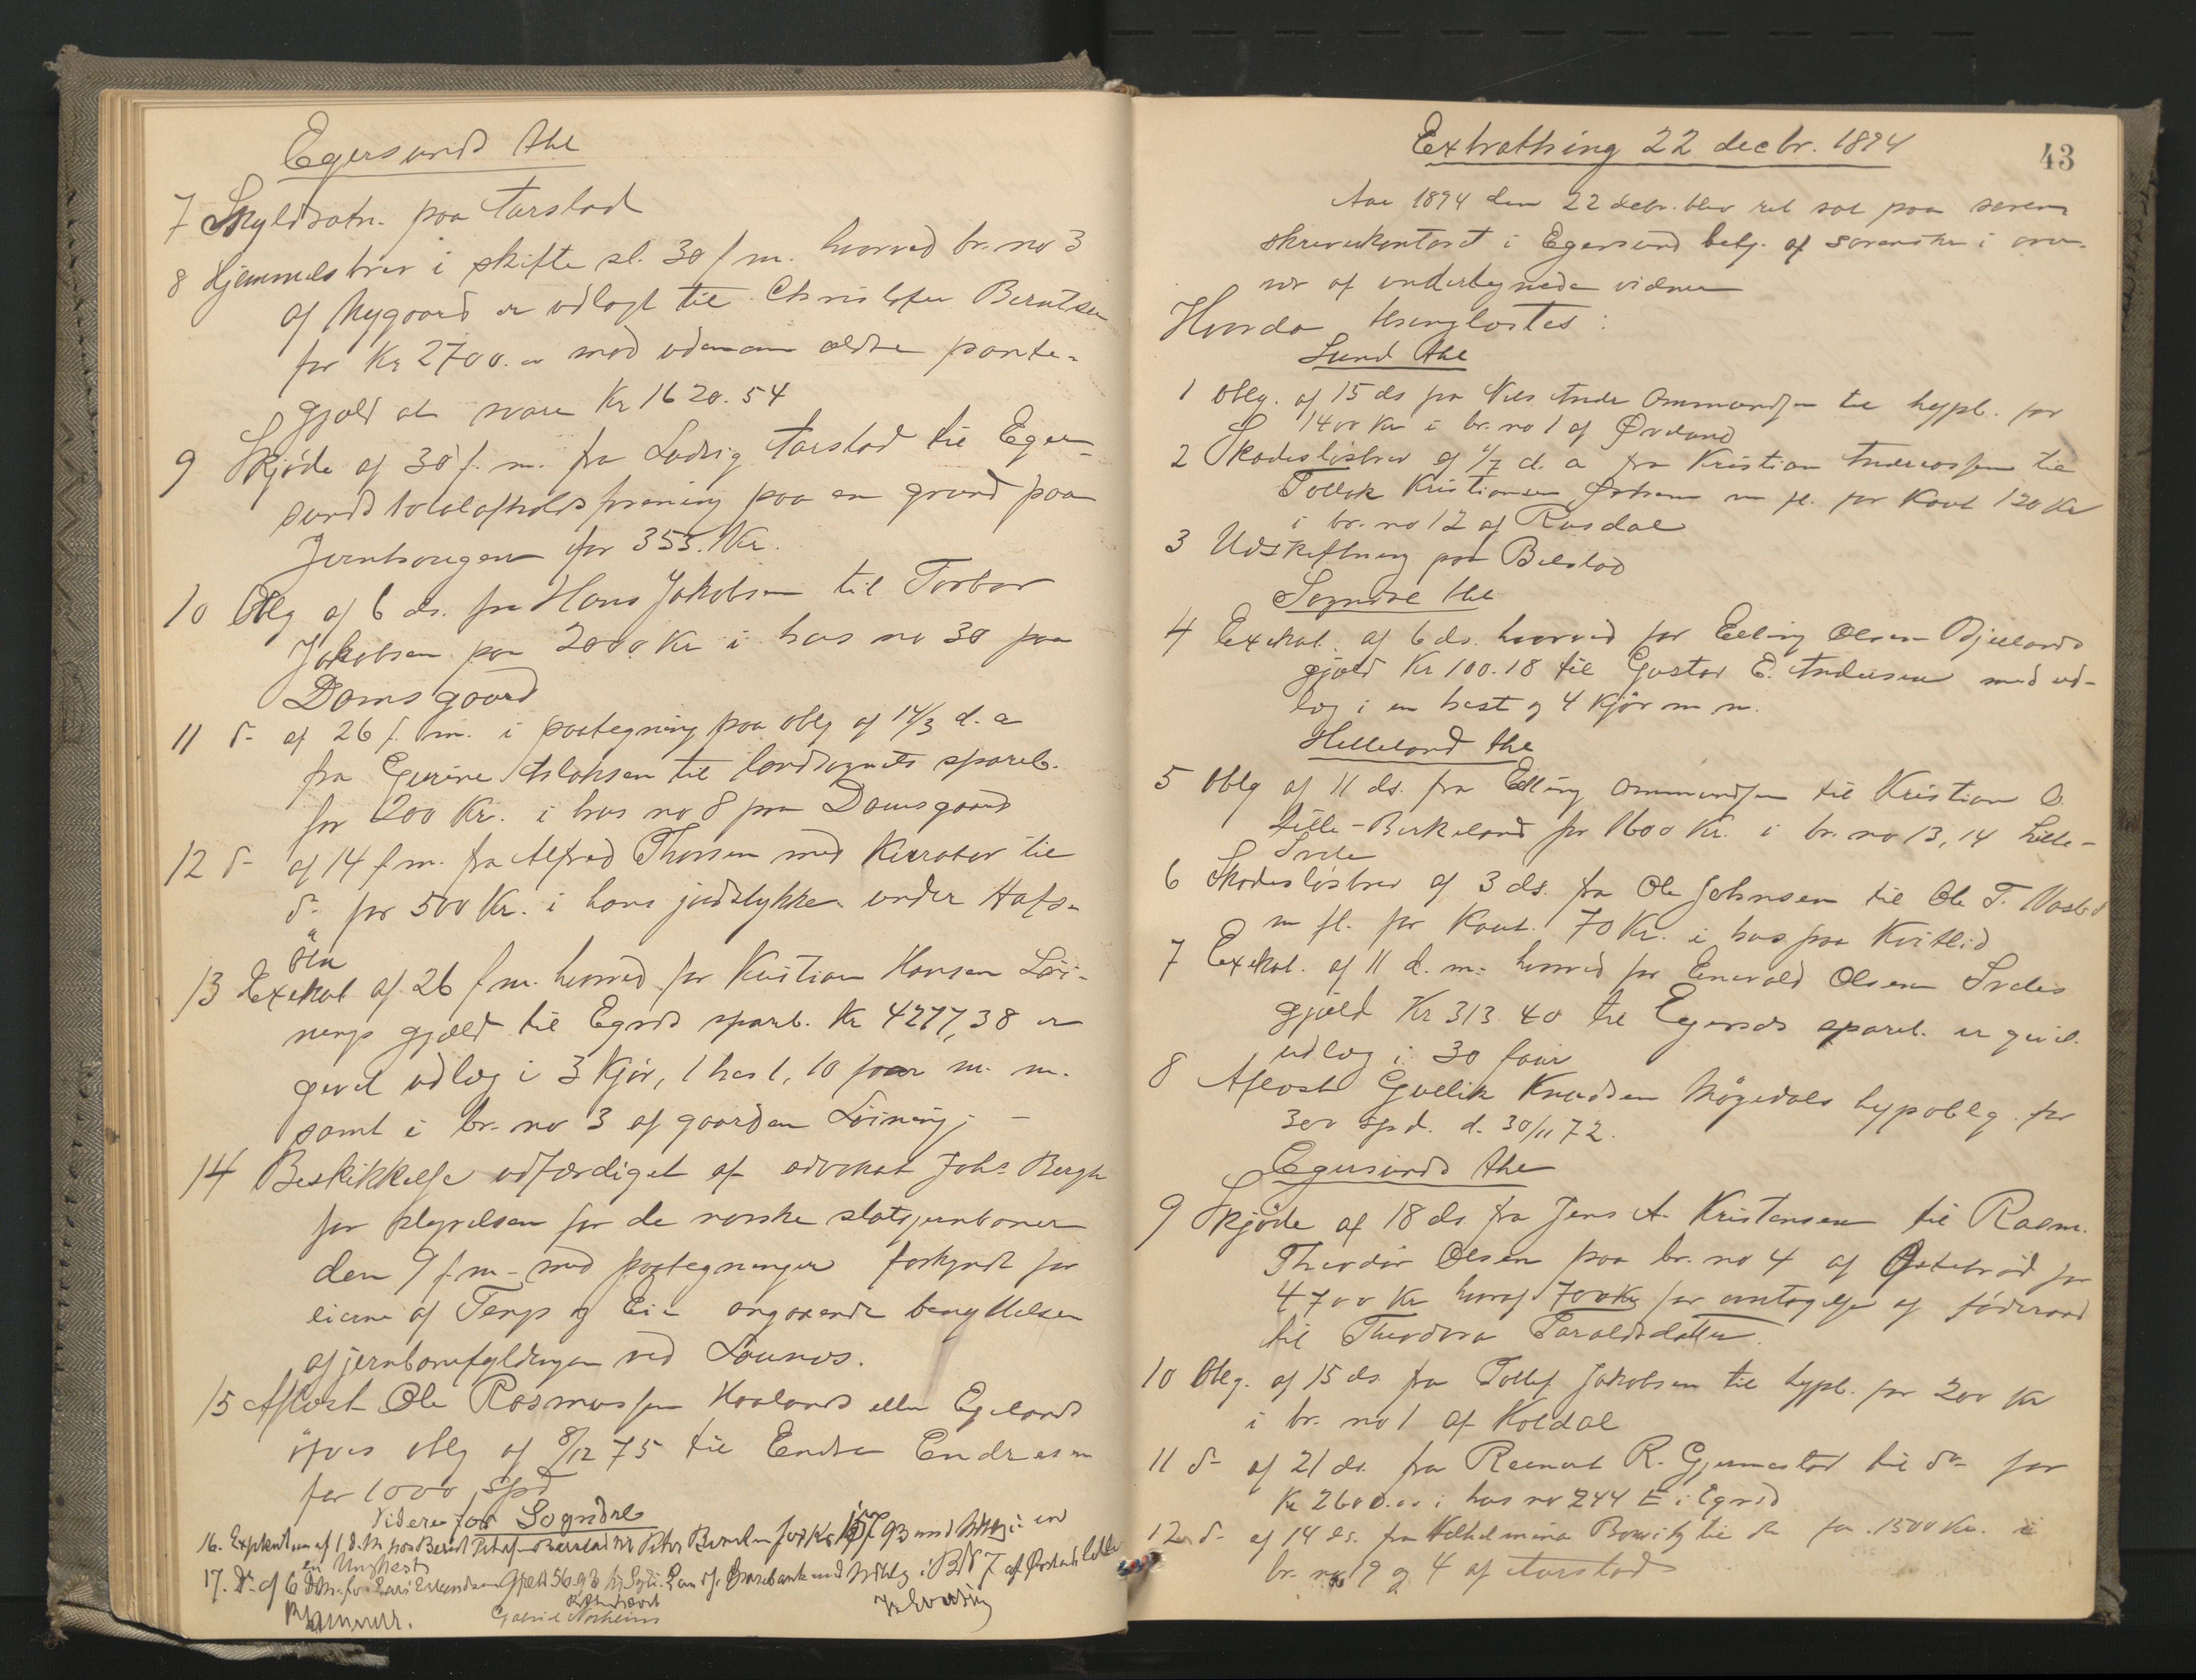 Egersunds thl
7 Skyldsætn. paa Aarstad
8 Hjemmelsbrev i skifte sl. 30 f. m. hvorved br. no 3
af Nygaard er udlagt til Christofer Berntsen
for Kr 2700.00 mod udenom ældre pante-
gjæld at svare Kr 1620.54
9 Skjøde af 30 f. m. fra Ludvig Aarstad til Eger-
sunds totalafholdsforening paa en grund paa
Jernhougen for 355. Kr.
10 Oblg af 6 ds. fra Hans Jakobsen til Torbor
Jakobsen paa 2000 Kr i hus no 30 paa
Damsgaard
11 do af 26 f. m. i paategning paa oblg af 14/3 d. a
fra Gurine Aslaksen til landsognets spareb.
for 200 Kr. i hus no 8 paa Damsgaard
12 do af 14 f. m. fra Alfred Thorsen med Kurator til
do for 500 Kr. i hans jordstykke under Hafs-
öen
13 Exekut af 26 f. m. hvorved for Kristian Hansen Löi-
nings gjæld til Egrsds spareb. Kr 4277,38 er
gjort udlæg i 3 Kjör, 1 hest, 10 faar m. m.
samt i br. no 3 af gaarden Löining; –
14 Beskikkelse udfærdiget af advokat Johs Bergh
for styrelsen for de norske statsjernbaner
den 9 f. m. med paategninger forkyndt for
eierne af Tengs og Eie angaaende benyttelsen
af jernbanefyldingen ved Launes.
15 Aflæst Ole Rasmussen Haalands eller Egelands
öfvrs oblg af 8/12 75 til Endre Endresen
for 1000 Spd
Videre for Sogndal
16. Exekution af 1 d. M. hos Berent
en Unghest
17. Do af 6 d.M. for Lars Erlandsen Gjeld 56.93
Gabriel Nordheim
43
Extrathing 22 decbr. 1894
Aar 1894 den 22 decbr. blev ret sat paa soren-
skriverkontoret i Egersund betj. af sorenskr. i over-
vær af undertegnede vidner
Hvorda thinglæstes:
Lund thl
1 Oblg. af 15 ds fra Nils Andr Ommundsen til hypb. for
1400 Kr i br. no 1 af Øveland
2 Skadesløsbrev af 4/7 d. a fra Kristian Andreassen til
Tollak Kristiansen m fl. for Kaut 120 Kr
i br. no 12 af Rusdal
3 Udskiftning paa Bilstad
Sogndal thl
4 Exekut. af 6 ds. hvorved for Elling Olsen Bjellands
gjæld Kr 100.18 til Gustav E. Andersen med ud-
læg i en hest og 4 Kjör m m.
Helleland thl
5 Oblg af 11 ds. fra Elling Ommundsen til Kristian O.
Lille-Birkeland for 1600 Kr. i br. no 13, 14 Lille-
Svele
6 Skadesløsbrev af 3 ds. fra Ole Johnsen til Ole T. Vasbø
m fl. for Kaut. 70 Kr. i hus paa Kvitlid
7 Exekut. af 11 d. m. hvorved for Enevald Olsen Sveles
gjæld Kr 313.40 til Egersds spareb. er gjort
udlæg i 30 faar
8 Aflæst Gullik Knudsen Møgedals hypoblg. for
300 spd. d. 30/11 72.
Egersunds thl
9 Skjøde af 18 ds fra Jens A. Kristensen til Rasm.
Theodor Olsen paa br. no 4 af Østebrød for
4700 Kr hvoraf 700 Kr for antagelse af föderaad
til Theodora Taraldsdatter.
10 Oblg. af 15 ds. fra Tollef Jakobsen til hypb. for 200 Kr
i br. no 1 af Koldal
11 do af 21 ds. fra Reinert R. Gjermestad til do for
Kr 2600.00 i hus no 244 E i Egrsd
12 do af 14 ds. fra Vilhelmina Bowitz til do for. 1500 Kr. i
br. no 19 og 4 af Aarstad